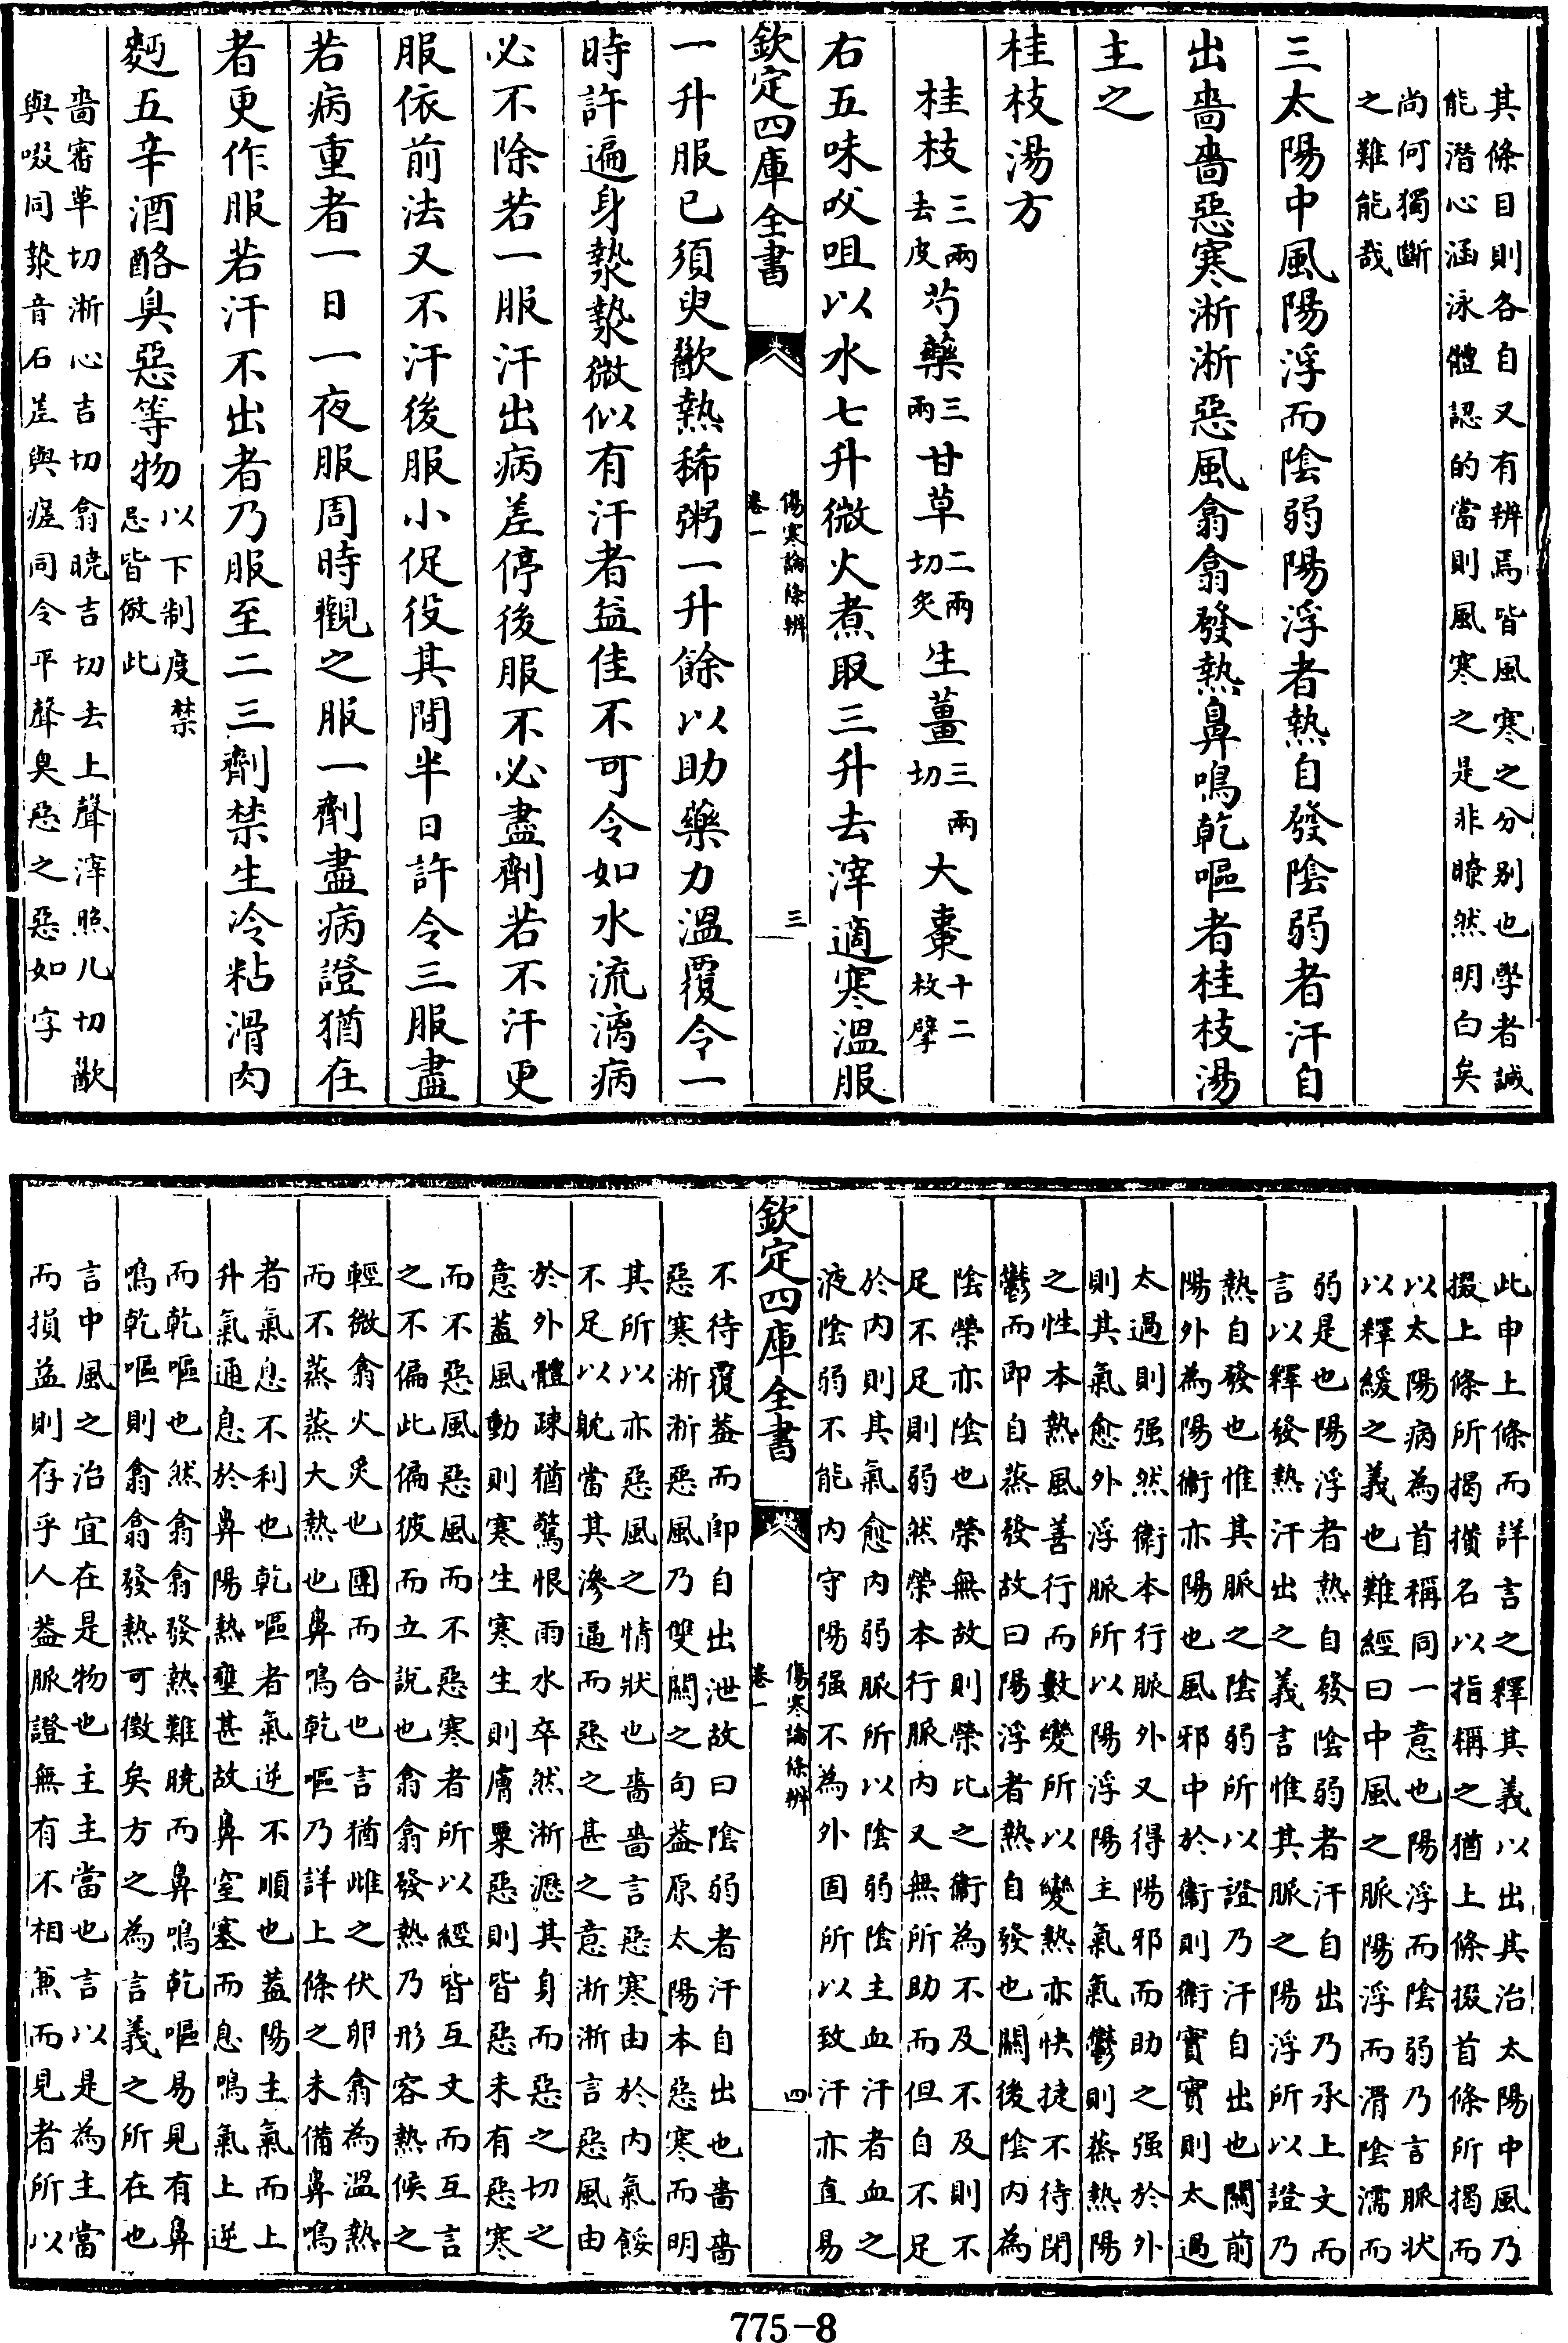 其條目則各自又有辨焉皆風寒之分别也學者誠
能潛心涵泳體認的當則風寒之是非瞭然明白矣
尚何獨斷
之難能哉
三太陽中風陽浮而陰弱陽浮者熱自發陰弱者汗自
出嗇嗇惡寒淅淅惡風翕翕發熱鼻鳴乾嘔者桂枝湯
主之
桂枝湯方
桂枝三兩去皮芍藥三兩甘草二兩切炙生薑三兩切大棗十二枚擘
右五味㕮咀以水七升微火煮取三升去滓適寒溫服
欽定四庫全書
傷寒論條辨
卷一
三
一升服已須臾歠熱稀粥一升餘以助藥力溫覆令一
時許遍身漐漐微似有汗者益佳不可令如水流漓病
必不除若一服汗出病差停後服不必盡劑若不汗更
服依前法又不汗後服小促役其間半日許令三服盡
若病重者一日一夜服周時觀之服一劑盡病證猶在
者更作服若汗不出者乃服至二三劑禁生冷粘滑肉
麪五辛酒酪臭惡等物以下制度禁忌皆倣此
嗇審革切淅心吉切翕曉吉切去上聲滓照几切歠
與啜同漐音石差與瘥同令平聲臭惡之惡如字
此申上條而詳言之釋其義以出其治太陽中風乃
掇上條所揭攢名以指稱之猶上條掇首條所揭而
以太陽病為首稱同一意也陽浮而陰弱乃言脈狀
以釋緩之義也難經曰中風之脈陽浮而滑陰濡而
弱是也陽浮者熱自發陰弱者汗自出乃承上文而
言以釋發熱汗出之義言惟其脈之陽浮所以證乃
熱自發也惟其脈之陰弱所以證乃汗自出也關前
陽外為陽衛亦陽也風邪中於衛則衛實實則太過
太過則强然衛本行脈外又得陽邪而助之强於外
則其氣愈外浮脈所以陽浮陽主氣氣鬱則蒸熱陽
之性本熱風善行而數變所以變熱亦快捷不待閉
鬱而即自蒸發故曰陽浮者熱自發也關後陰內為
陰榮亦陰也榮無故則榮比之衛為不及不及則不
足不足則弱然榮本行脈內又無所助而但自不足
於內則其氣愈內弱脈所以陰弱陰主血汗者血之
液陰弱不能內守陽强不為外固所以致汗亦直易
欽定四庫全書
傷寒論條辨
卷一
四
不待覆葢而卽自出泄故曰陰弱者汗自出也嗇嗇
惡寒淅淅惡風乃雙關之句葢原太陽本惡寒而明
其所以亦惡風之情狀也嗇嗇言惡寒由於內氣餒
不足以躭當其滲逼而惡之甚之意淅淅言惡風由
於外體疎猶驚恨雨水卒然淅瀝其身而惡之切之
意葢風動則寒生寒生則膚粟惡則皆惡未有惡寒
而不惡風惡風而不惡寒者所以經皆互文而互言
之不偏此偏彼而立說也翕翕發熱乃形容熱候之
輕微翕火炙也團而合也言猶雌之伏卵翕為溫熱
而不蒸蒸大熱也鼻鳴乾嘔乃詳上條之未備鼻鳴
者氣息不利也乾嘔者氣逆不順也葢陽主氣而上
升氣通息於鼻陽熱壅甚故鼻窒塞而息鳴氣上逆
而乾嘔也然翕翕發熱難曉而鼻鳴乾嘔易見有鼻
鳴乾嘔則翕翕發熱可徵矣方之為言義之所在也
言中風之治宜在是物也主主當也言以是為主當
而損益則存乎人葢脈證無有不相兼而見者所以
775-8